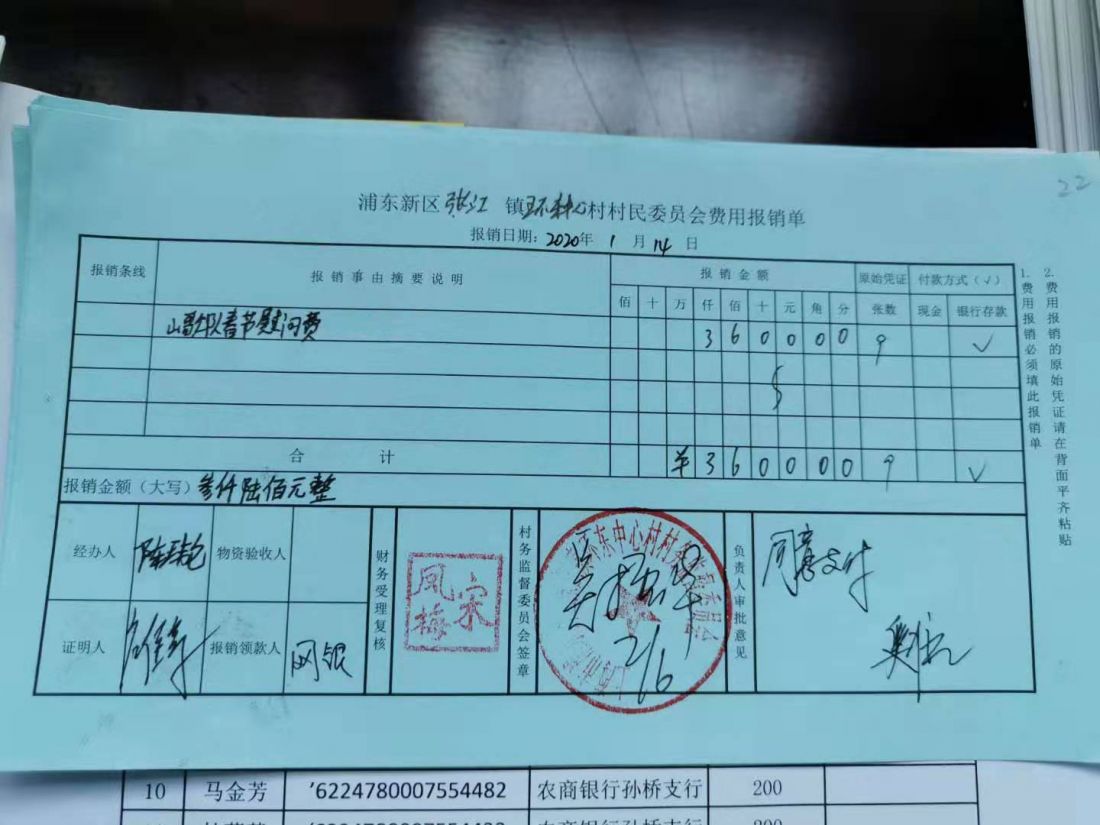 22
浦东新区 张江 镇环东中心村村民委员会费用报销单
报销日期：2020年 1 月 14 日
报销条线 报销事由摘要说明 报销金额 原始凭证 付款方式（√）
佰 十 万 仟 佰 十 元 角 分 张数 现金 银行存款
山歌队春节慰问费 3 6 0 0 0 0 9 √
合 计 ¥ 3 6 0 0 0 0 9 √
报销金额（大写）叁仟陆佰元整
经办人 物资验收人
证明人 报销领款人 网银
财务受理复核
宋凤梅
村务监督委员会签章
2/6
负责人审批意见
同意支付
1.费用报销必须填此报销单
2.费用报销的原始凭证请在背面平齐粘贴
10 马金芳 '6224780007554482 农商银行孙桥支行 200